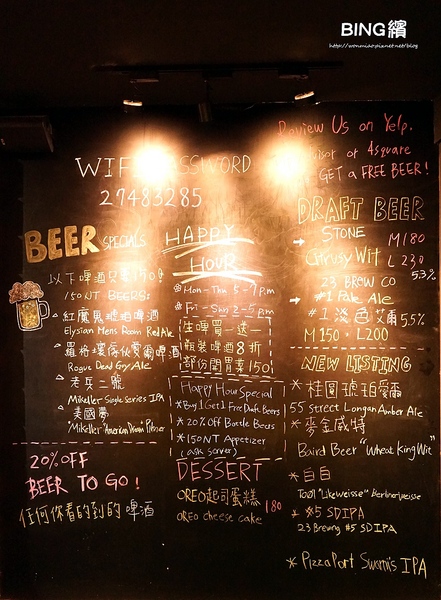 BING繽
http://wonmiao.pixnet.net/blog
Review Us on Yelp,
or 4square
GET a FREE BEER!
WIFI PASSWORD
27483285
BEER SPECIALS
以下啤酒只要150!
150NT BEERS:
紅魔鬼琥珀啤酒
Elysian Mens Room Red Ale
羅格壞傢伙愛爾啤酒
Rogue Dead Guy Ale
老兵二號
Mikeller Single Series IPA
美國夢
"Mikeller "American Dream" Pilsner
20% OFF
BEER TO GO!
任何你看的到的啤酒
HAPPY
HOUR
* Mon-Thu 5-7p.m
* Fri-Sun 2-5p.m
生啤買一送一
瓶裝啤酒8折
部份開胃菜150!
Happy Hour Special
* Buy 1 Get 1 Free Draft Beers
* 20% Off Bottle Beers
* 150NT Appetizer
(ask server)
DESSERT
OREO起司蛋糕
OREO cheese cake 180
DRAFT BEER
STONE
Citrusy Wit
M180
L230
5.3%
23 BREW CO
#1 Pale Ale
#1 淡色艾爾 5.5%
M150 L200
NEW LISTING
* 桂圓琥珀愛爾
55 Street Longan Amber Ale
* 麥金威特
Baird Beer "Wheat King Wit"
* 白白
To Øl "Like Weisse" Berliner weisse
* #5 SDIPA
23 Brewing #5 SDIPA
* Pizza Port Swami's IPA